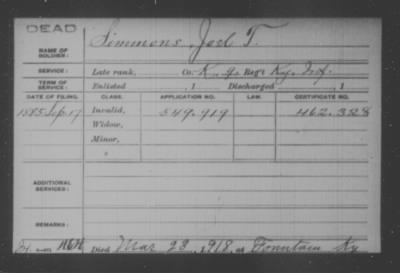 DEAD
NAME OF SOLDIER: Simmons, Joel T.
SERVICE: Late rank, Co. K, 9. Reg't Ky. Inf.
TERM OF SERVICE: Enlisted , 1 Discharged , 1
DATE OF FILING. CLASS. APPLICATION NO. LAW. CERTIFICATE NO.
1885 Sep. 17 Invalid, 549.919 462.328
Widow,
Minor,
ADDITIONAL SERVICES:
REMARKS:
Died Mar 23, 1918, at Fountain Ky